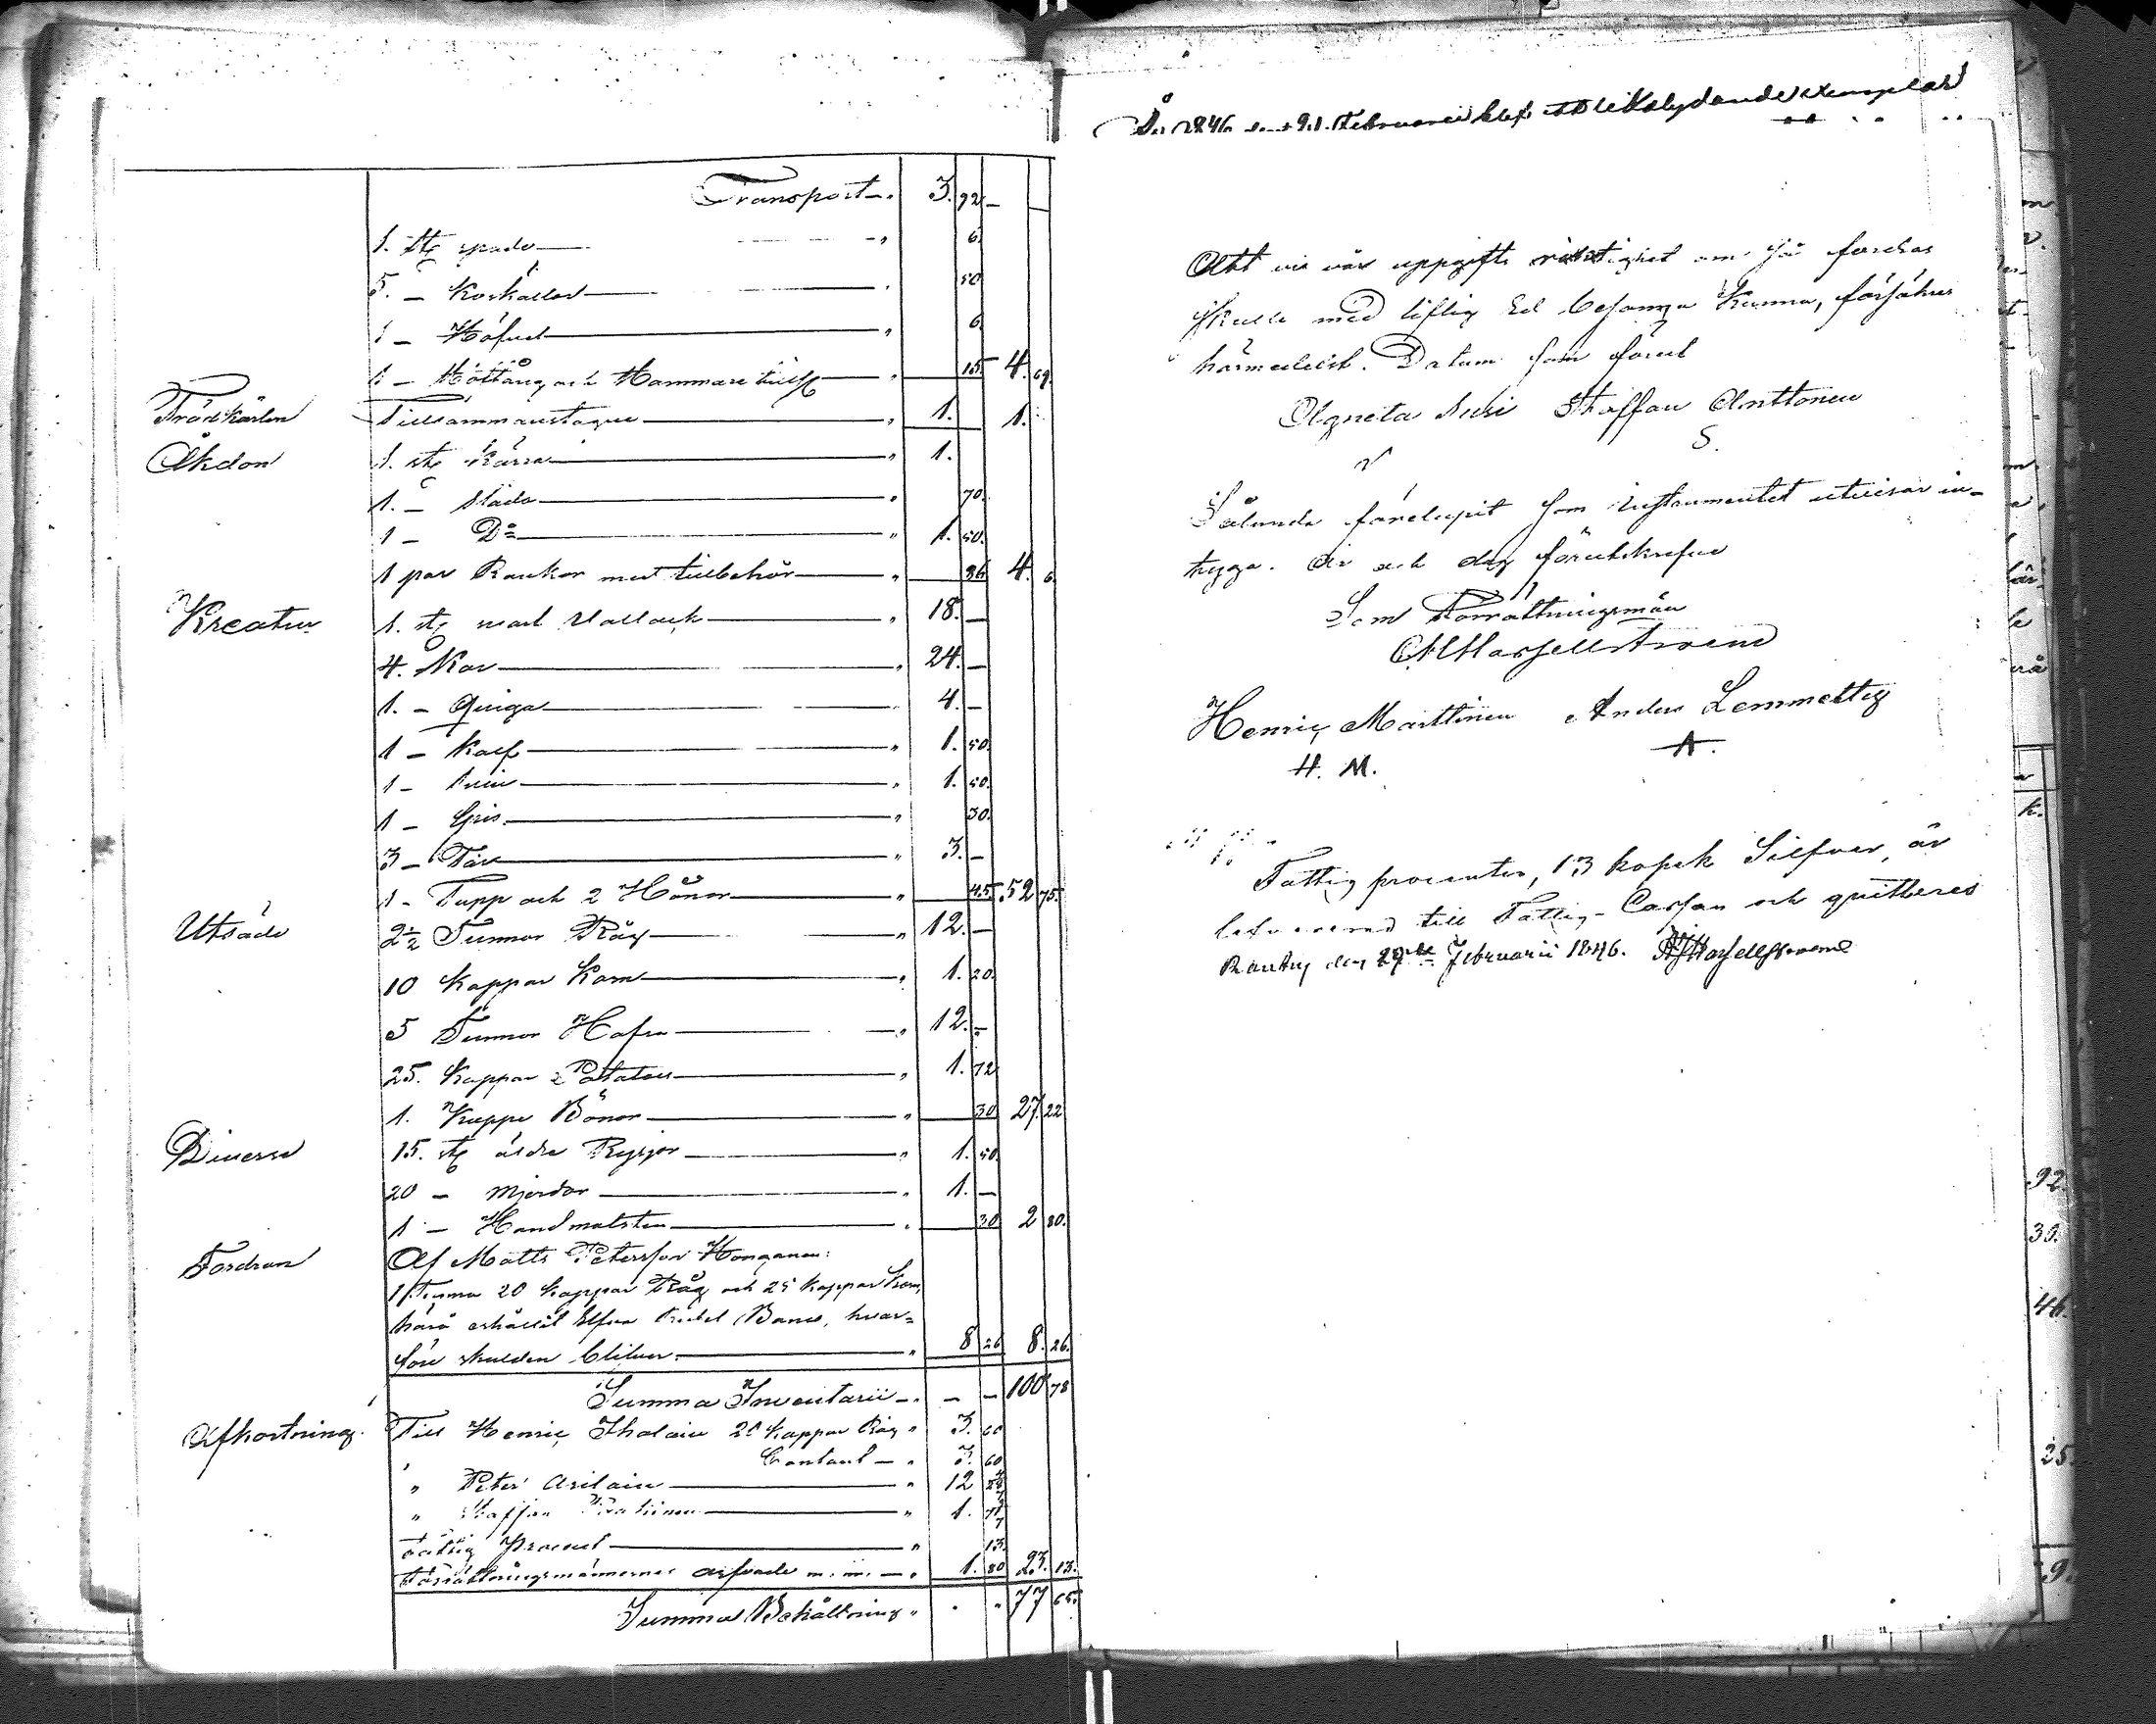 Transport 3. 92
1. st spade 6.
5. – Korkällor 50
1 – Höfvel 6.
1 – Höftång och Hammare tills 15 4. 69.
Trädkärlen Tillsammanstagne 1. 1.
Åkdon 1. st Kärra 1.
1. – släda 70.
1 – Do 1. 50.
1 par Rankor med tillbehör 36 4. 6.
Kreatur 1. st Wallack 18. –
4. Kor 24. –
1. – Qviga 4. –
1 – Kalf 1. 50.
1 – Svin 1. 50.
1 – Gris 30.
3 – Får 3. –
1 – Tupp och 2 Hönor 45. 52 75.
Utsäde 2½ Tunnor Råg 12. –
10 Kappar Korn 1. 20.
5 Tunnor Hafra 12. –
25. Kappar Potatoes 1. 72
1. Kappe Bönor 30 27. 22
Diverse 15. st äldre Ryssjor 1. 50.
20 – Mjerdar 1. –
1 – Handmalsten 30 2 80.
Fordran Af Matts Petersson Honganen:
1 Tunna 20 Kappar Råg och 25 Kappar Korn,
härå erhållit Elfva Rubel Banco, hvar=
före skulden blifver 8 26 8. 26.
Summa Inventarii – – 100 78
Afkortning Till Henric Ihalain 20 Kappar Råg 3. 60
" Contant 3. 60
" Peter Asilain 12
" Staffan 1.
Fattig Procent 13.
Förrättningsmännernes arfvode m. m. 1. 80 23. 13.
Summa Behållning 77 65.
År 1846 den 21. Februarii blef ett likalydande exemplar
Att vi vår uppgifts riktighet om så fordras
skulle med liflig Ed besanna kunna, försäkras
härmedelst. Datum som förut
Agneta Susi Staffan Anttonen
S.
Sålunda förelupit som instrumentet utvisar in-
tyga. År och dag förutskrefne
Som Förrättningsmän
Henric Marttinen Anders Lemmetty
H. M. A.
Fattig procenten, 13 kopek Silfver, är
levererad till Fattig-Cassan och quitteres
Rautu den 27de Februarii 1846.